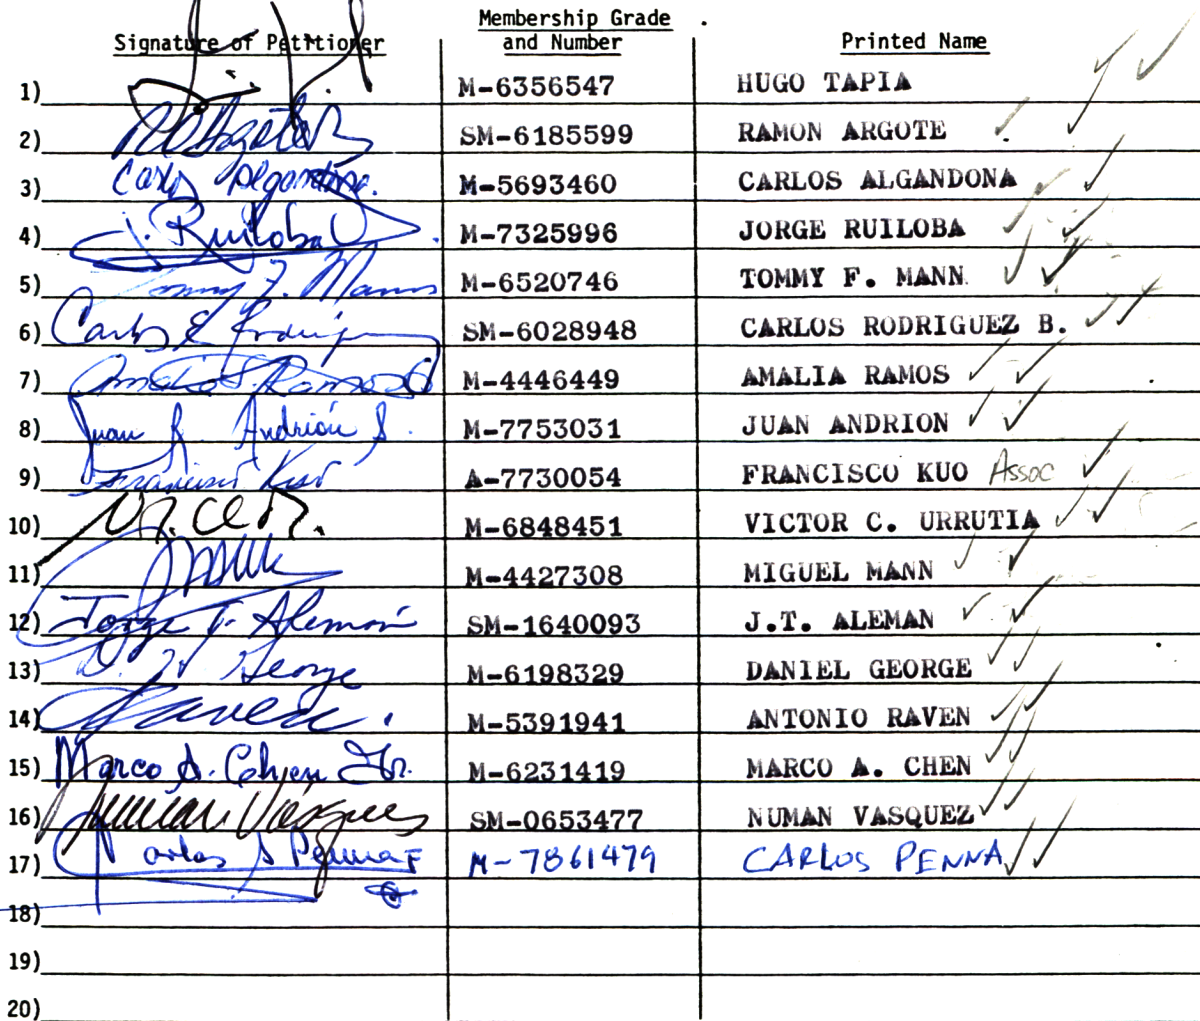 Membership Grade
Signature of Petitioner and Number Printed Name
1) M-6356547 HUGO TAPIA
2) SM-6185599 RAMON ARGOTE
3) Carlos Algandona. M-5693460 CARLOS ALGANDONA
4) J. Ruiloba M-7325996 JORGE RUILOBA
5) Tommy F. Mann M-6520746 TOMMY F. MANN
6) Carlos E Rodriguez SM-6028948 CARLOS RODRIGUEZ B.
7) M-4446449 AMALIA RAMOS
8) Juan R. Andrión S. M-7753031 JUAN ANDRION
9) Francisco Kuo A-7730054 FRANCISCO KUO Assoc
10) M-6848451 VICTOR C. URRUTIA
11) M-4427308 MIGUEL MANN
12) Jorge T. Alemán SM-1640093 J.T. ALEMAN
13) George M-6198329 DANIEL GEORGE
14) Raven M-5391941 ANTONIO RAVEN
15) Marco A. Chen Jr. M-6231419 MARCO A. CHEN
16) Numan Vásquez SM-0653477 NUMAN VASQUEZ
17) Carlos A Penna F M-7861479 CARLOS PENNA
18)
19)
20)